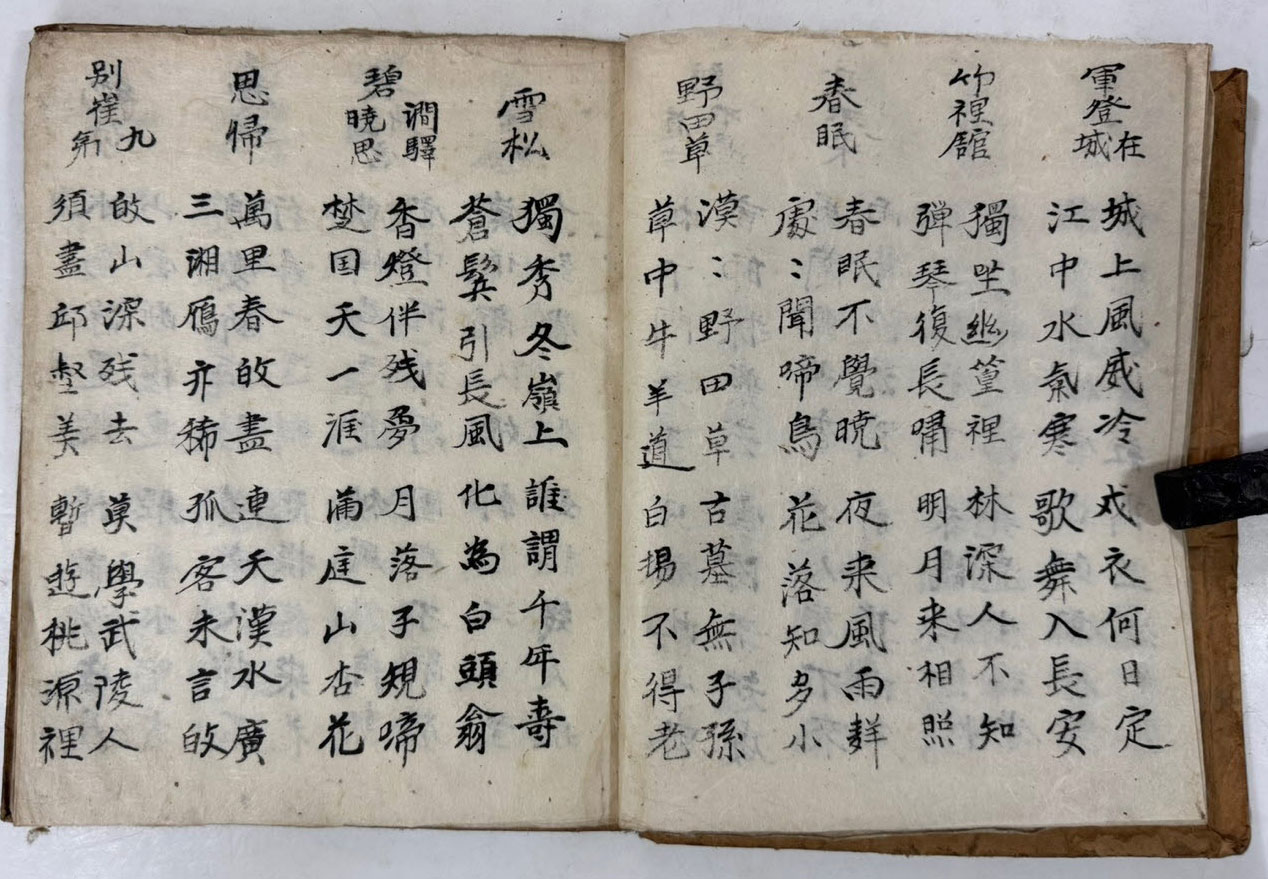 在軍登城
城上風威冷 戎衣何日定
江中水氣寒 歌舞入長安
竹裡舘
獨坐幽篁裡 林深人不知
弾琴復長嘯 明月来相照
春眠
春眠不覺暁 夜来風雨聲
處〻聞啼鳥 花落知多小
野田草
漠〻野田草 古墓無子孫
草中牛羊道 白揚不得老
雪松
獨秀冬嶺上 誰謂千年壽
蒼髯引長風 化為白頭翁
碧澗驛暁思
香燈伴残夢 月落子規啼
楚国天一涯 滿庭山杏花
思帰
萬里春敀盡 連天漢水廣
三湘鴈亦稀 孤客未言敀
別崔九弟
敀山深残去 莫學武陵人
須盡邱壑美 暫遊桃源裡